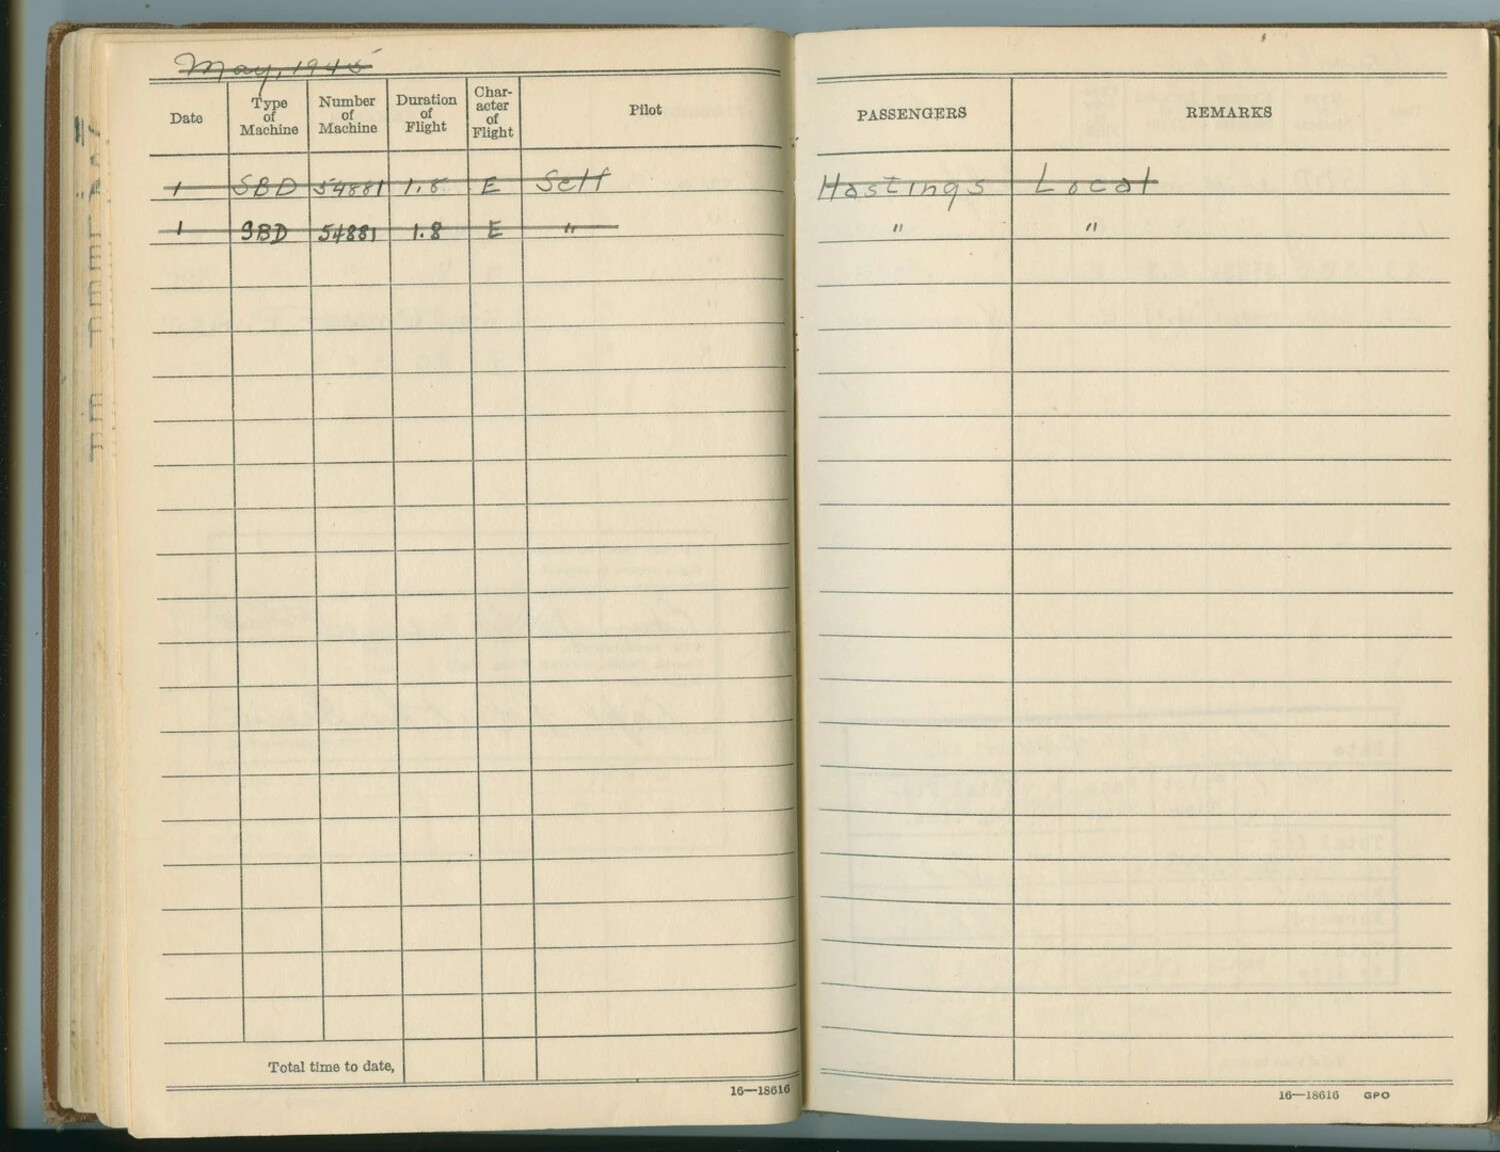 May, 1945
Date Type of Machine Number of Machine Duration of Flight Char-acter of Flight Pilot PASSENGERS REMARKS
1 SBD 54881 1.8 E Self Hastings Local
1 SBD 54881 1.8 E " " "
Total time to date,
16—18616
16—18616 GPO